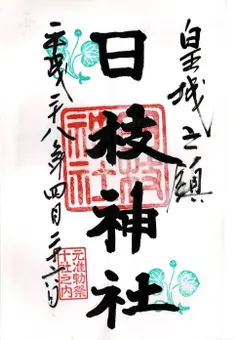 皇城之鎮
日枝神社
日枝神社
元准勅祭
十社之内
平成二十八年四月二十二日